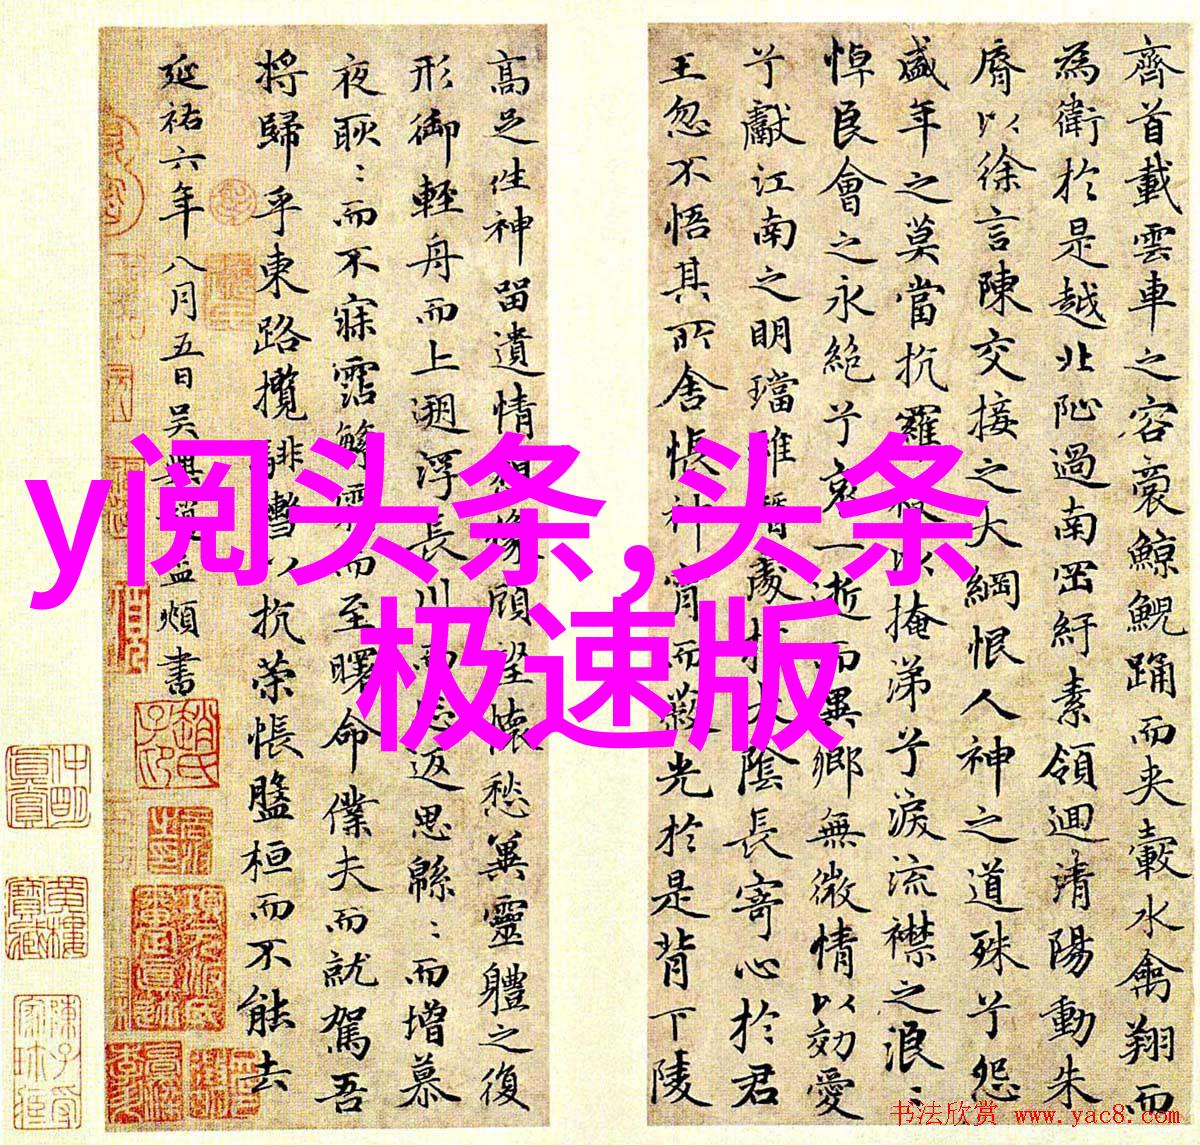 齊首載雲車之容裔鯨鯢踊而夾轂水禽翔而
為衛於是越北沚過南岡紆素領迴清陽動朱
脣以徐言陳交接之大綱恨人神之道殊兮怨
盛年之莫當抗羅袂以掩涕兮淚流襟之浪〻
悼良會之永絕兮哀一逝而異鄉無微情以効愛
兮獻江南之明璫雖潛處於太陰長寄心於君
王忽不悟其所舍悵神宵而蔽光於是背下陵
高足往神留遺情想像顧望懷愁冀靈體之復
形御輕舟而上遡浮長川而忘返思緜〻而增慕
夜耿〻而不寐霑繁霜而至曙命僕夫而就駕吾
將歸乎東路攬騑轡以抗策悵盤桓而不能去
延祐六年八月五日吳興趙孟頫書
y阅头条,头条
极速版
书法欣赏 www.yac8.com